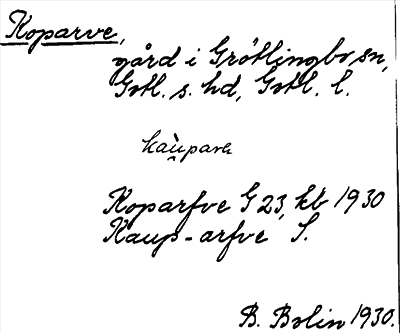 Koparve,
gård i Grötlingbo sn,
Gotl. s. hd, Gotl. l.
kaùpara
Koparfve G 23, kb 1930
Kaup-arfve S.
B. Bolin 1930.